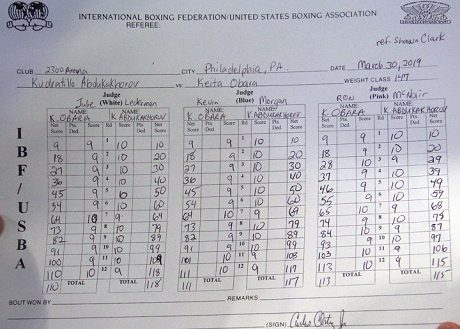 INTERNATIONAL BOXING FEDERATION/UNITED STATES BOXING ASSOCIATION
REFEREE:
ref: Shawn Clark
CLUB 2300 Arena CITY Philadelphia, PA DATE March 30, 2019
Kudratillo Abdukakhorov vs Keita Obara WEIGHT CLASS 147
Judge Judge Judge
Julie (White) Lederman Kevin (Blue) Morgan Ron (Pink) McNair
NAME NAME NAME NAME NAME NAME
K. OBARA K. ABDUKAKHOROV K. OBARA K. ABDUKAKHOROV K. OBARA K. ABDUKAKHOROV
Net Score Pts. Ded. Score Rd Score Pts. Ded. Net Score Net Score Pts. Ded. Score Rd Score Pts. Ded. Net Score Net Score Pts. Ded. Score Rd Score Pts. Ded. Net Score
9 9 1 10 10 9 9 1 10 10 9 9 1 10 10
18 9 2 10 20 18 9 2 10 20 18 9 2 10 20
27 9 3 10 30 27 9 3 10 30 28 10 3 9 29
36 9 4 10 40 36 9 4 10 40 37 9 4 10 39
45 9 5 10 50 45 9 5 10 50 46 9 5 10 49
54 9 6 10 60 54 9 6 10 60 55 9 6 10 59
64 10 7 9 69 64 10 7 9 69 65 10 7 9 68
73 9 8 10 79 73 9 8 10 79 74 9 8 10 78
82 9 9 10 89 82 9 9 10 89 84 10 9 9 87
91 9 10 10 99 91 9 10 10 99 93 9 10 10 97
100 9 11 10 109 101 10 11 9 108 103 10 11 9 106
110 10 12 9 118 111 10 12 9 117 113 10 12 9 115
110 TOTAL 118 111 TOTAL 117 113 TOTAL 115
IBF/USBA
BOUT WON BY REMARKS
(SIGN) Carlos Ortiz Jr